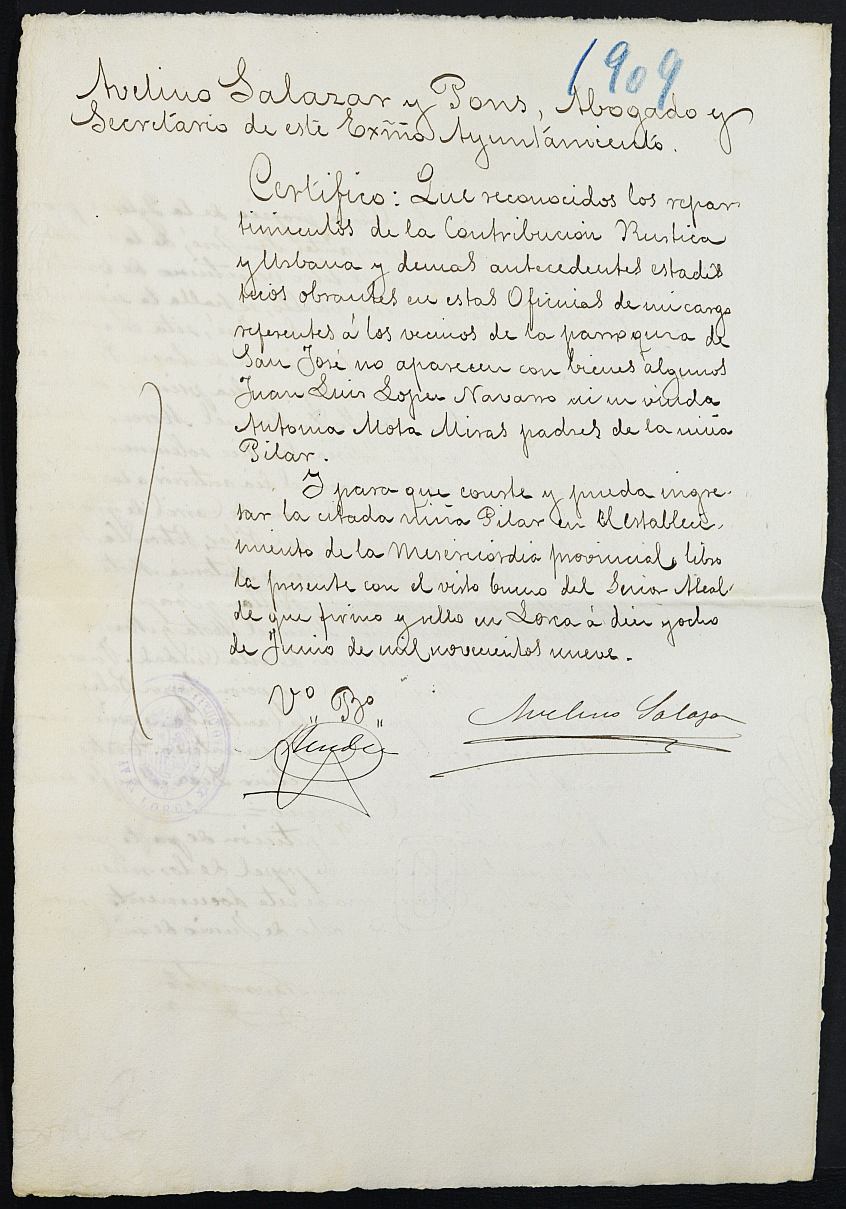 1909
Avelino Salazar y Pons, Abogado y
Secretario de este Exmo Ayuntamiento.
Certifico: Que reconocidos los repar-
timientos de la Contribucion Rustica
y Urbana y demas antecedentes estadis
ticos obrantes en estas Oficinas de mi cargo
referentes á los vecinos de la parroquia de
San José no aparecen con bienes algunos
Juan Luis Lopez Navarro ni su viuda
Antonia Mota Miras padres de la niña
Pilar.
Y para que conste y pueda ingre-
sar la citada niña Pilar en el Estableci-
miento de la Misericordia provincial, libro
la presente con el visto bueno del Señor Alcal-
de que firmo y sello en Lorca á diez y ocho
de Junio de mil novecientos nueve.
Vo Bo
Avelino Salazar